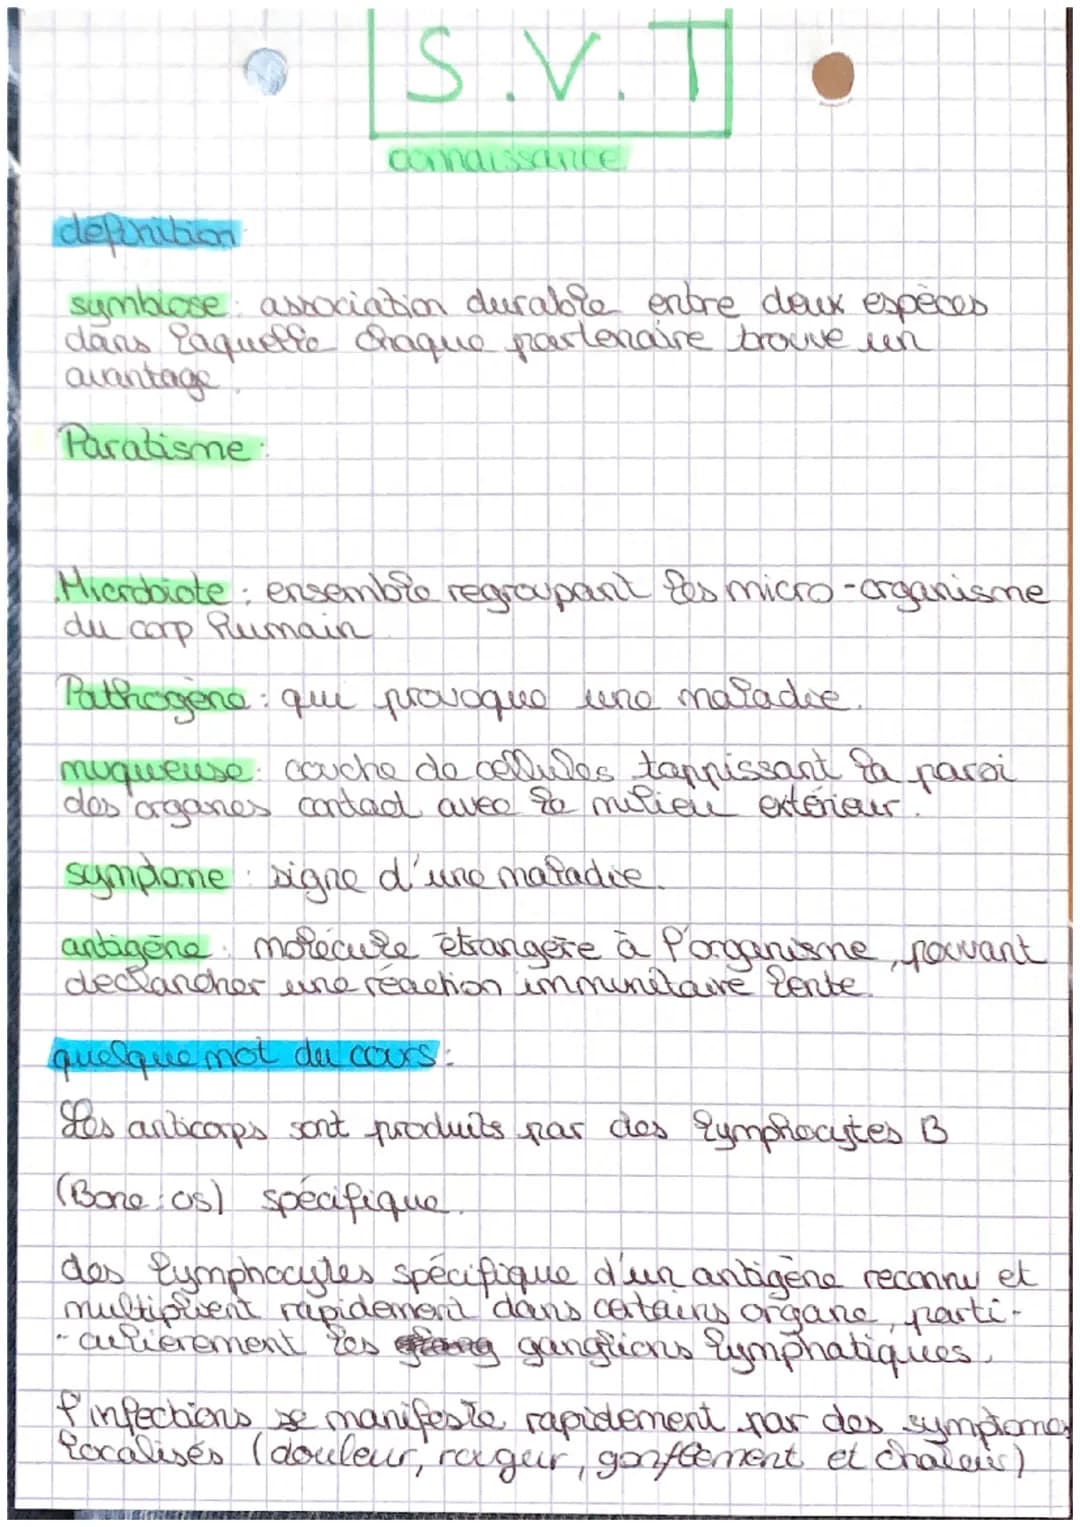 S.V.T
connaissance
definition
symbiose : association durable entre deux espèces
dans laquelle chaque partenaire trouve un
avantage.
Paratisme :
Microbiote : ensemble regroupant les micro-organisme
du corp humain
Pathogène : qui provoque une maladie.
muqueuse : couche de cellules tappissant la paroi
des organes contact avec le milieu extérieur.
symptome : signe d'une maladie.
antigène : molécule étrangère à l'organisme, pouvant
declancher une réaction immunitaire lente.
quelque mot du cours :
Les anticorps sont produits par des lymphocytes B
(Bone : os) spécifique.
des lymphocytes spécifique d'un antigène reconnu et
multiplient rapidement dans certains organe, parti-
-culièrement les ganglions lymphatiques.
l'infections se manifeste rapidement par des symptomes
localisés (douleur, rougeur, gonflement et chaleur)